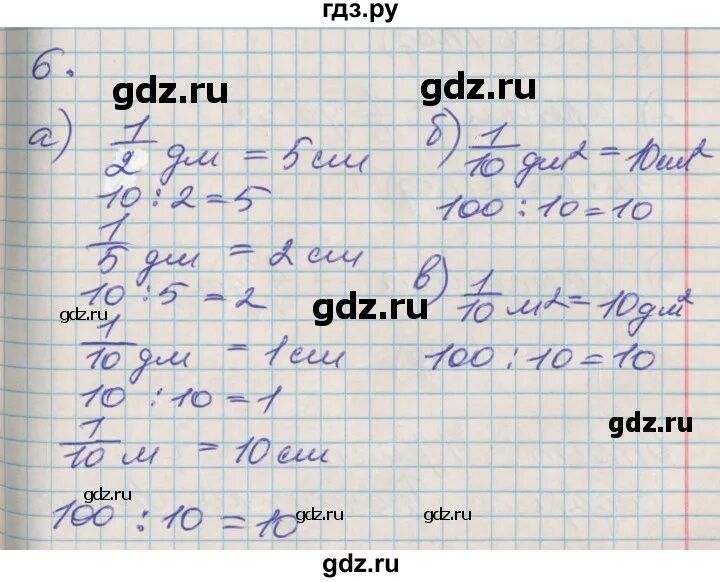 гдз.ру
6.
gdz.ru
gdz.ru
а) 1/2 дм = 5 см
10 : 2 = 5
1/5 дм = 2 см
10 : 5 = 2
gdz.ru
gdz.ru
1/10 дм = 1 см
10 : 10 = 1
1/10 м = 10 см
gdz.ru
100 : 10 = 10
б) 1/10 дм² = 10 см²
100 : 10 = 10
в) 1/10 м² = 10 дм²
100 : 10 = 10
gdz.ru
gdz.ru
gdz.ru